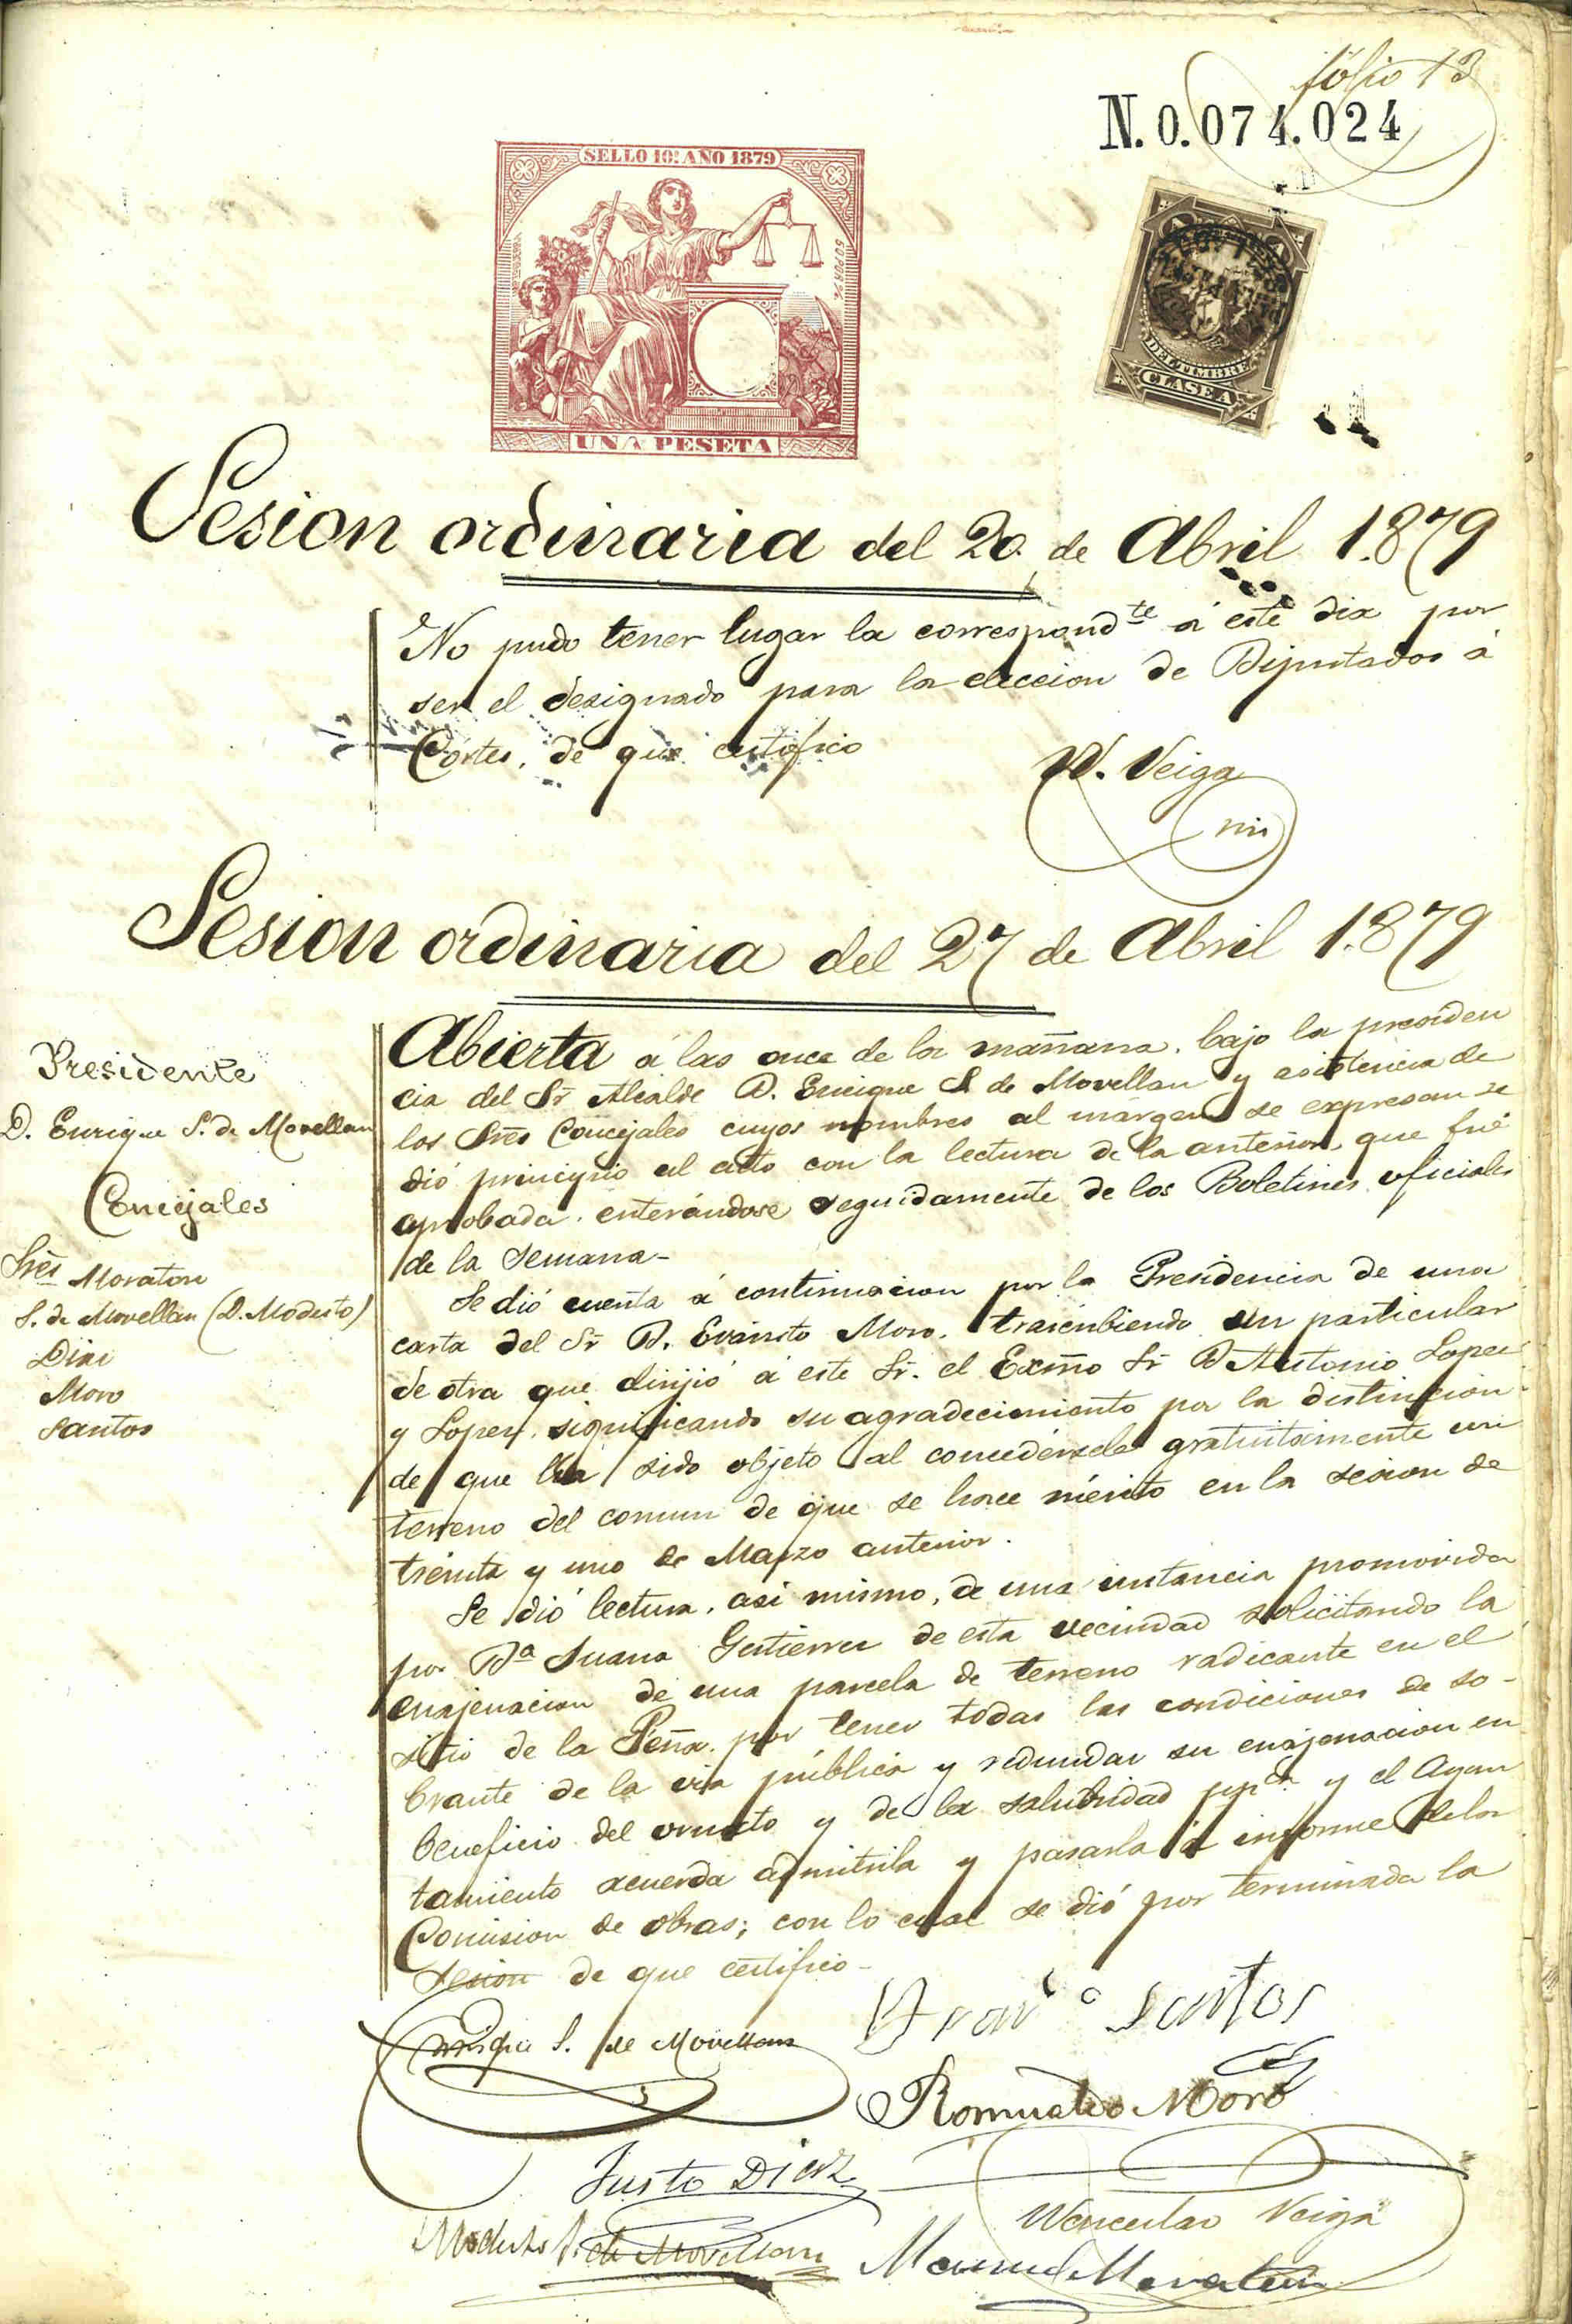 fólio 13
N.0.074.024
SELLO 10º AÑO 1879
UNA PESETA
DEL TIMBRE
CLASE A
Sesion ordinaria del 20 de Abril 1.879
No pudo tener lugar la correspondte á este dia por
ser el designado para la eleccion de Diputados á
Córtes, de que certifico
W. Veiga
Sesion ordinaria del 27 de Abril 1.879
Presidente
D. Enrique S. de Movellan
Concejales
Sres Moraton
S. de Movellan (D. Modesto)
Diez
Moro
Santos
Abierta á las once de la mañana, bajo la presiden
cia del Sr Alcalde D. Enrique S. de Movellan y asistencia de
los Sres Concejales cuyos nombres al márgen se expresan se
dió principio al acto con la lectura de la anterior, que fué
aprobada, enterándose seguidamente de los Boletines oficiales
de la semana-
Se dió cuenta á continuacion por la Presidencia de una
carta del Sr D. Evaristo Moro, trascribiendo un particular
de otra que dirijió á este Sr. el Exmo Sr D Antonio Lopez
y Lopez, significando su agradecimiento por la distincion
de que ha sido objeto al concedérsele gratuitamente un
terreno del comun de que se hace mérito en la sesion de
treinta y uno de Marzo anterior.
Se dió lectura, asi mismo, de una instancia promovida
por Da Juana Gutierrez de esta vecindad solicitando la
enajenacion de una parcela de terreno radicante en el
sitio de la Peña, por tener todas las condiciones de so-
brante de la via pública y redundar su enajenacion en
beneficio del ornato y de la salubridad ppca y el Ayun
tamiento acuerda admitirla y pasarla á informe de la
Comision de obras; con lo cual se dió por terminada la
sesion de que certifico-
Enrique S. de Movellan
Franco Santos
Romualdo Moro
Justo Diez
Wenceslao Veiga
Modesto S. de Movellan
Manuel Moraton